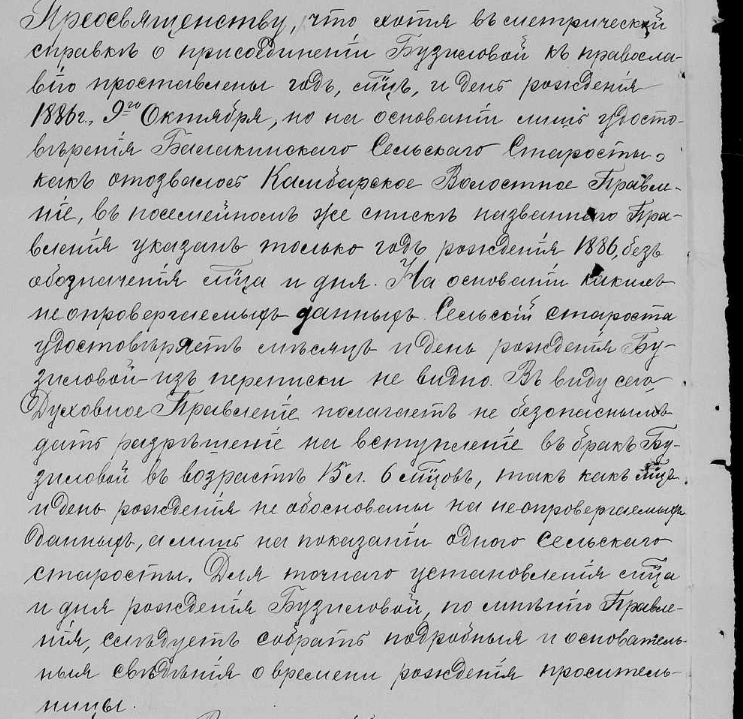 Преосвященству, что хотя въ метрической
справкѣ о присоединеніи Бузиловой къ правосла-
вію проставлены годъ, мцъ, и день рожденія
1886 г., 9го Октября, но на основаніи лишь удосто-
вѣренія Балакинскаго Сельскаго Старосты,
какъ отозвалось Камбарское Волостное Правле-
ніе, въ посемейномъ же спискѣ названнаго Пра-
вленія указанъ только годъ рожденія 1886, безъ
обозначенія мца и дня. На основаніи какихъ
неопровергаемыхъ данныхъ Сельскій староста
удостовѣряетъ мѣсяцъ и день рожденія Бу-
зиловой из переписки не видно. Въ виду сего,
Духовное Правленіе полагаетъ не безопаснымъ
дать разрѣшеніе на вступленіе въ бракъ Бу-
зиловой въ возрастѣ 15 л. 6 мцовъ, такъ какъ мцъ
и день рожденія не обоснованы на неопровергаемыхъ
данныхъ, а лишь на показаніи одного Сельскаго
старосты. Для точнаго установленія мца
и дня рожденія Бузиловой, по мнѣнію Правле-
нія, слѣдуетъ собрать подробныя и основатель-
ныя свѣдѣнія о времени рожденія проситель-
ницы.